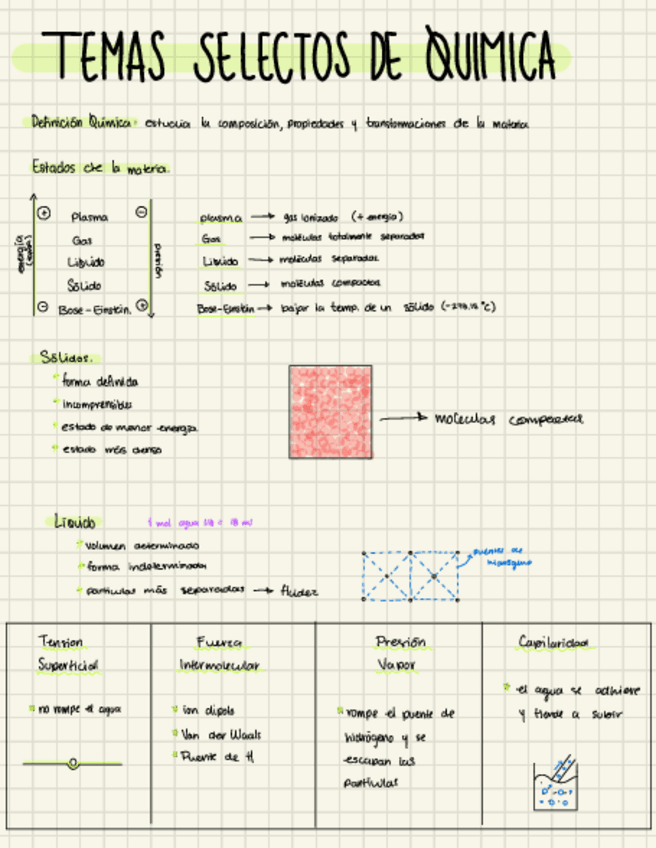 TEMAS SELECTOS DE QUIMICA
Definición Química: estudia la composición, propiedades y transformaciones de la materia
Estados de la materia.
energía
presión
+ Plasma -
Gas
Líquido
Sólido
- Bose-Einstein. +
plasma → gas ionizado (+ energía)
Gas → moléculas totalmente separadas
Líquido → moléculas separadas
Sólido → moléculas compactas
Bose-Einstein → bajar la temp. de un sólido
Sólidos.
forma definida
incomprensibles
estado de menor energía
estado más denso
→ moleculas compactas
Líquido
1 mol agua
volumen determinado
forma indeterminada
particulas más separadas → fluidez
puentes de
hidrógeno
Tension
Superficial
no rompe el agua
Fuerza
Intermolecular
ion dipolo
Van der Waals
Puente de H
Presión
Vapor
rompe el puente de
hidrógeno y se
escapan las
particulas
Capilaridad
el agua se adhiere
y tiende a subir